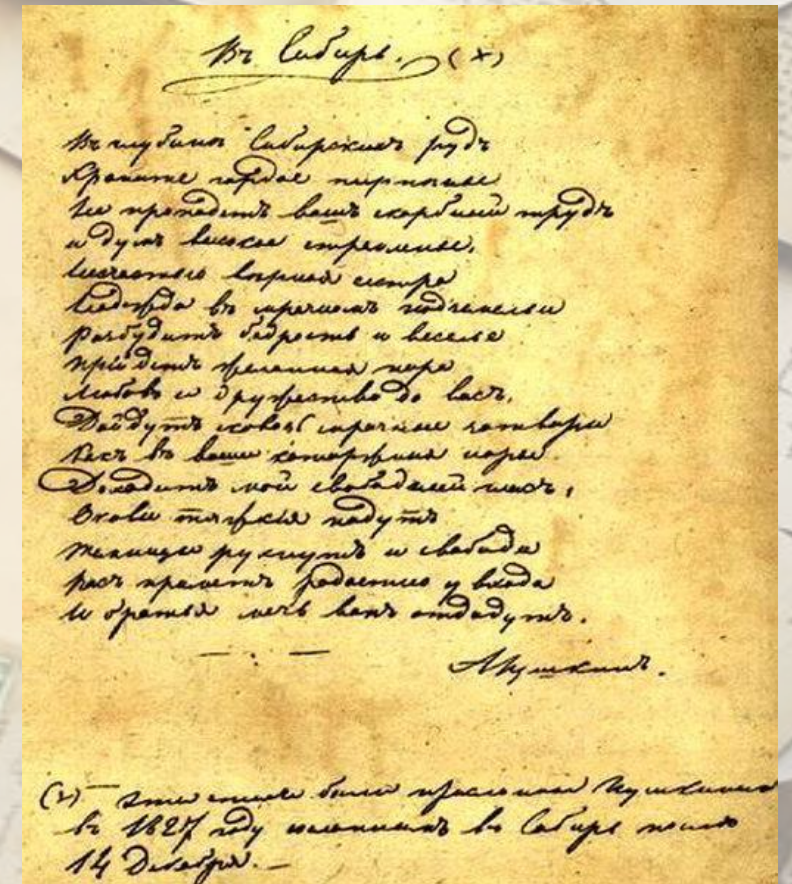 Въ Сибирь. (х)
Въ глубинѣ Сибирскихъ рудъ
Храните гордое терпѣнье
Не пропадетъ вашъ скорбный трудъ
и думъ высокое стремленье.
Несчастью вѣрная сестра
Надежда въ мрачномъ подземельи
Разбудитъ бодрость и веселье
прійдетъ желанная пора
Любовь и дружество до васъ.
Дойдутъ сквозь мрачные затворы
Какъ въ ваши каторжныя норы
Доходитъ мой свободный гласъ,
Оковы тяжкія падутъ
Темницы рухнутъ и свобода
Васъ приметъ радостно у входа
И братья мечь вамъ отдадутъ.
А Пушкинъ.
(х) Эти стихи были Пушкинымъ
въ 1827 году въ Сибирь после
14 Декабря.